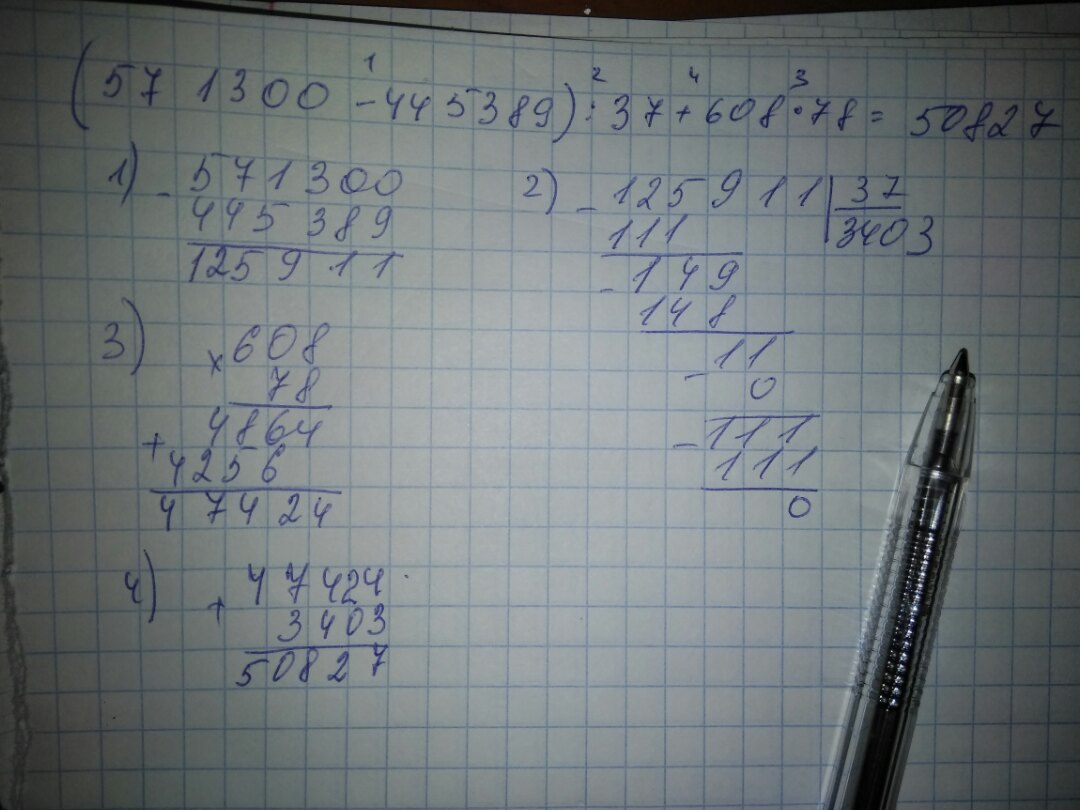 1 2 4 3
(571300 - 445389) : 37 + 608 · 78 = 50827
1) - 571300
445389
125911
2) - 125911 | 37
111 3403
- 149
148
- 11
0
- 111
111
0
3) × 608
78
+ 4864
4256
47424
4) + 47424
3403
50827